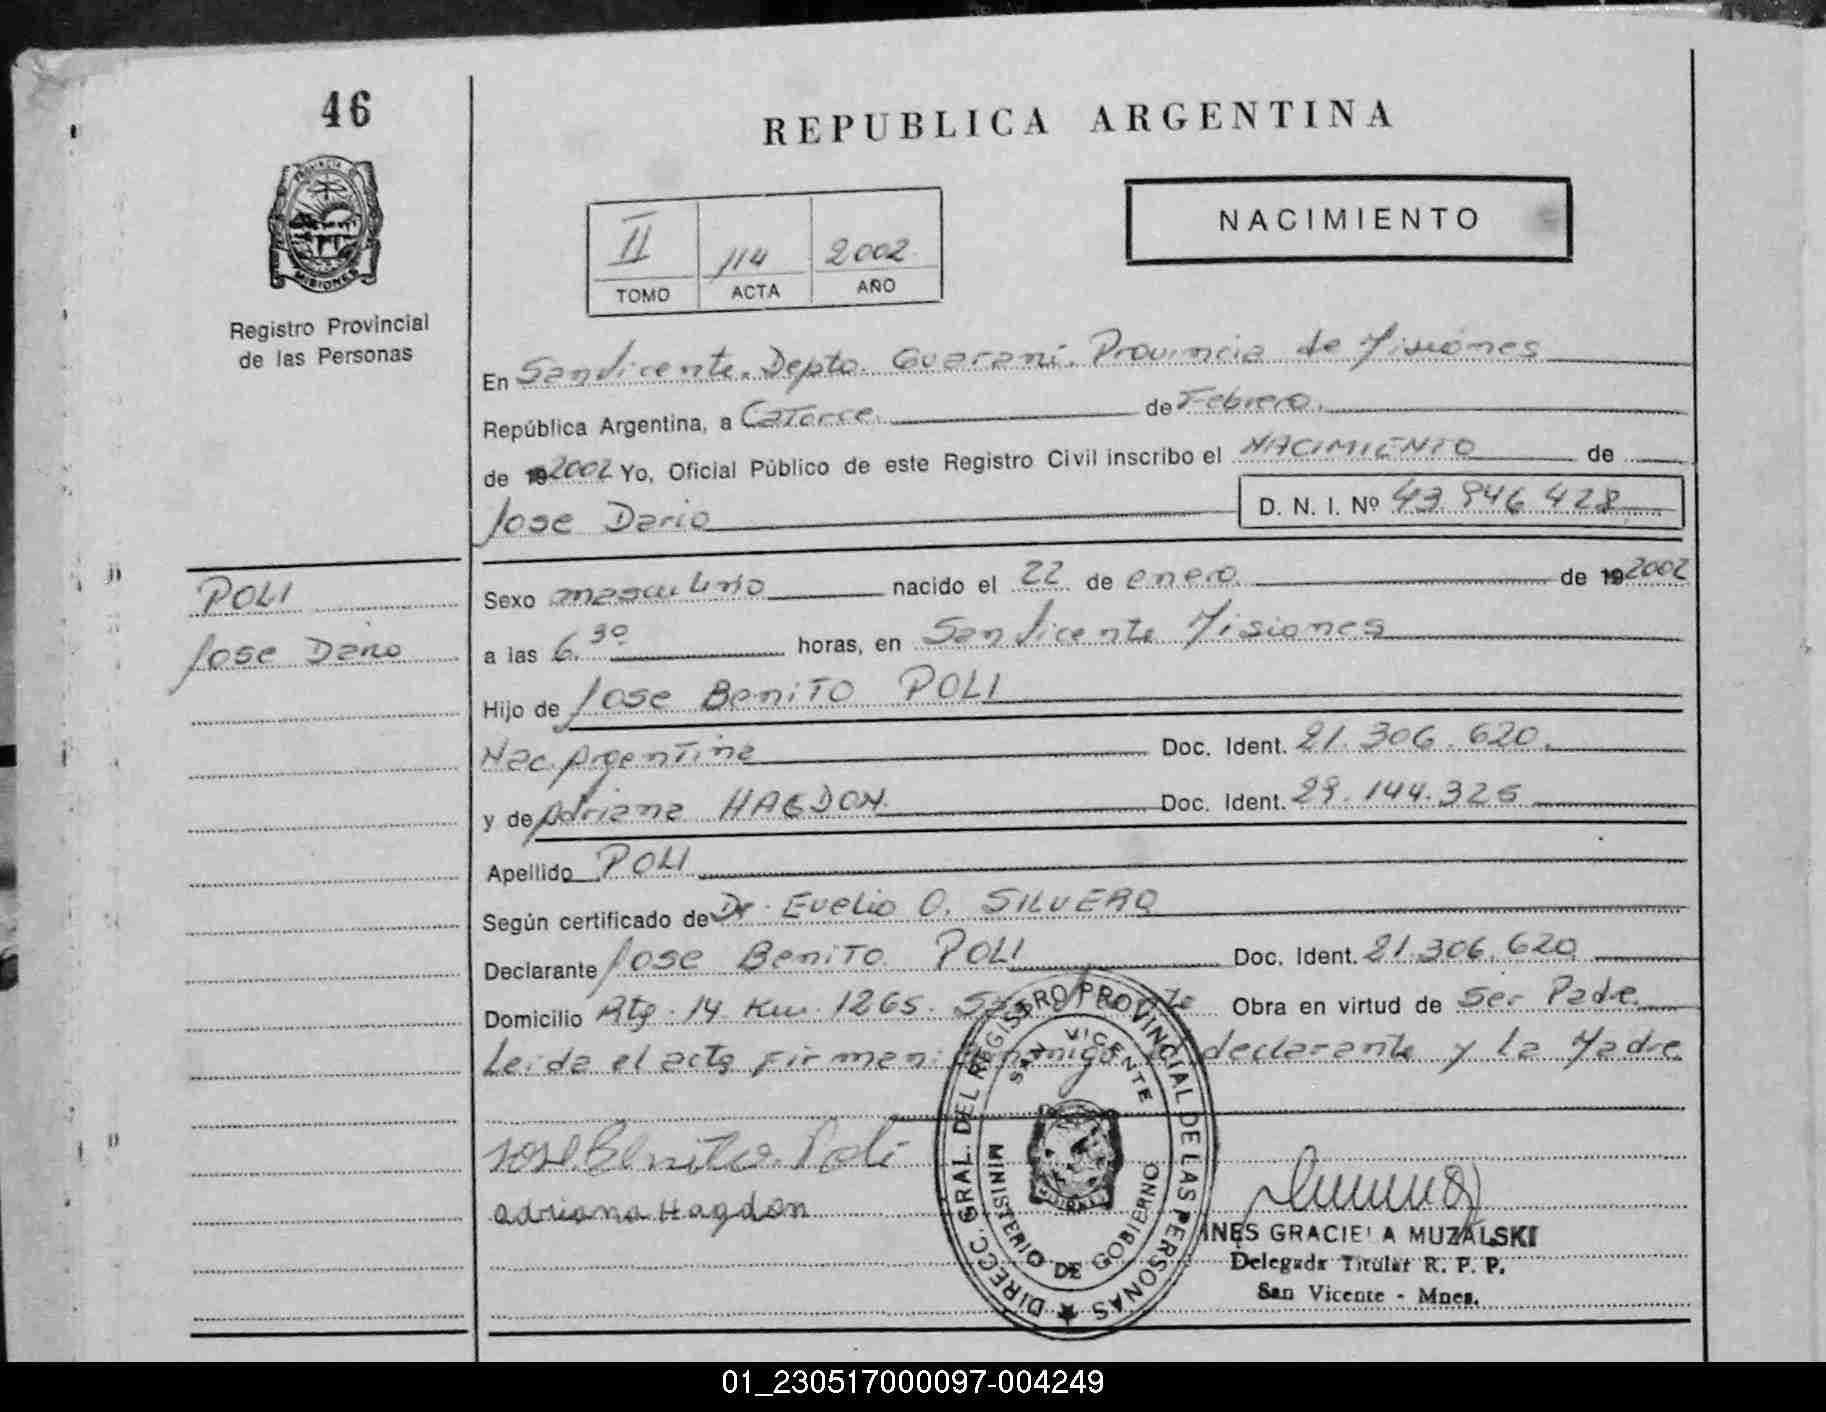 46
REPUBLICA ARGENTINA
PROVINCIA DE
MISIONES
Registro Provincial
de las Personas
II 114 2002
TOMO ACTA AÑO
NACIMIENTO
En San Vicente. Depto. Guarani. Provincia de Misiones
República Argentina, a Catorce. de Febrero.
de 19 2002 Yo, Oficial Público de este Registro Civil inscribo el NACIMIENTO de
Jose Dario D. N. I. Nº 43.946.428
POLI
Jose Dario
Sexo masculino nacido el 22 de enero de 19 2002
a las 6.30 horas, en San Vicente Misiones
Hijo de Jose Benito POLI
Nac. Argentina Doc. Ident. 21.306.620.
y de Adriana HAGDON. Doc. Ident. 29.144.326
Apellido POLI
Según certificado de Dr. Evelio O. SILVERA
Declarante Jose Benito POLI Doc. Ident. 21.306.620
Domicilio Rta. 14 Km. 1265. San Vicente Obra en virtud de Ser Padre.
Leida el acta firman conmigo el declarante y la Madre
Jose Benito Poli
adriana Hagdon
DIRECC. GRAL. DEL REGISTRO PROVINCIAL DE LAS PERSONAS
SAN VICENTE
MINISTERIO DE GOBIERNO
INES GRACIELA MUZALSKI
Delegada Titular R. P. P.
San Vicente - Mnes.
01_230517000097-004249